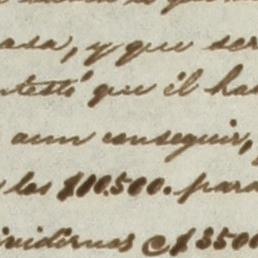 asa, y que ser
testó que él has
aun conseguir,
los $100.500. para
vidirnos @ $3500